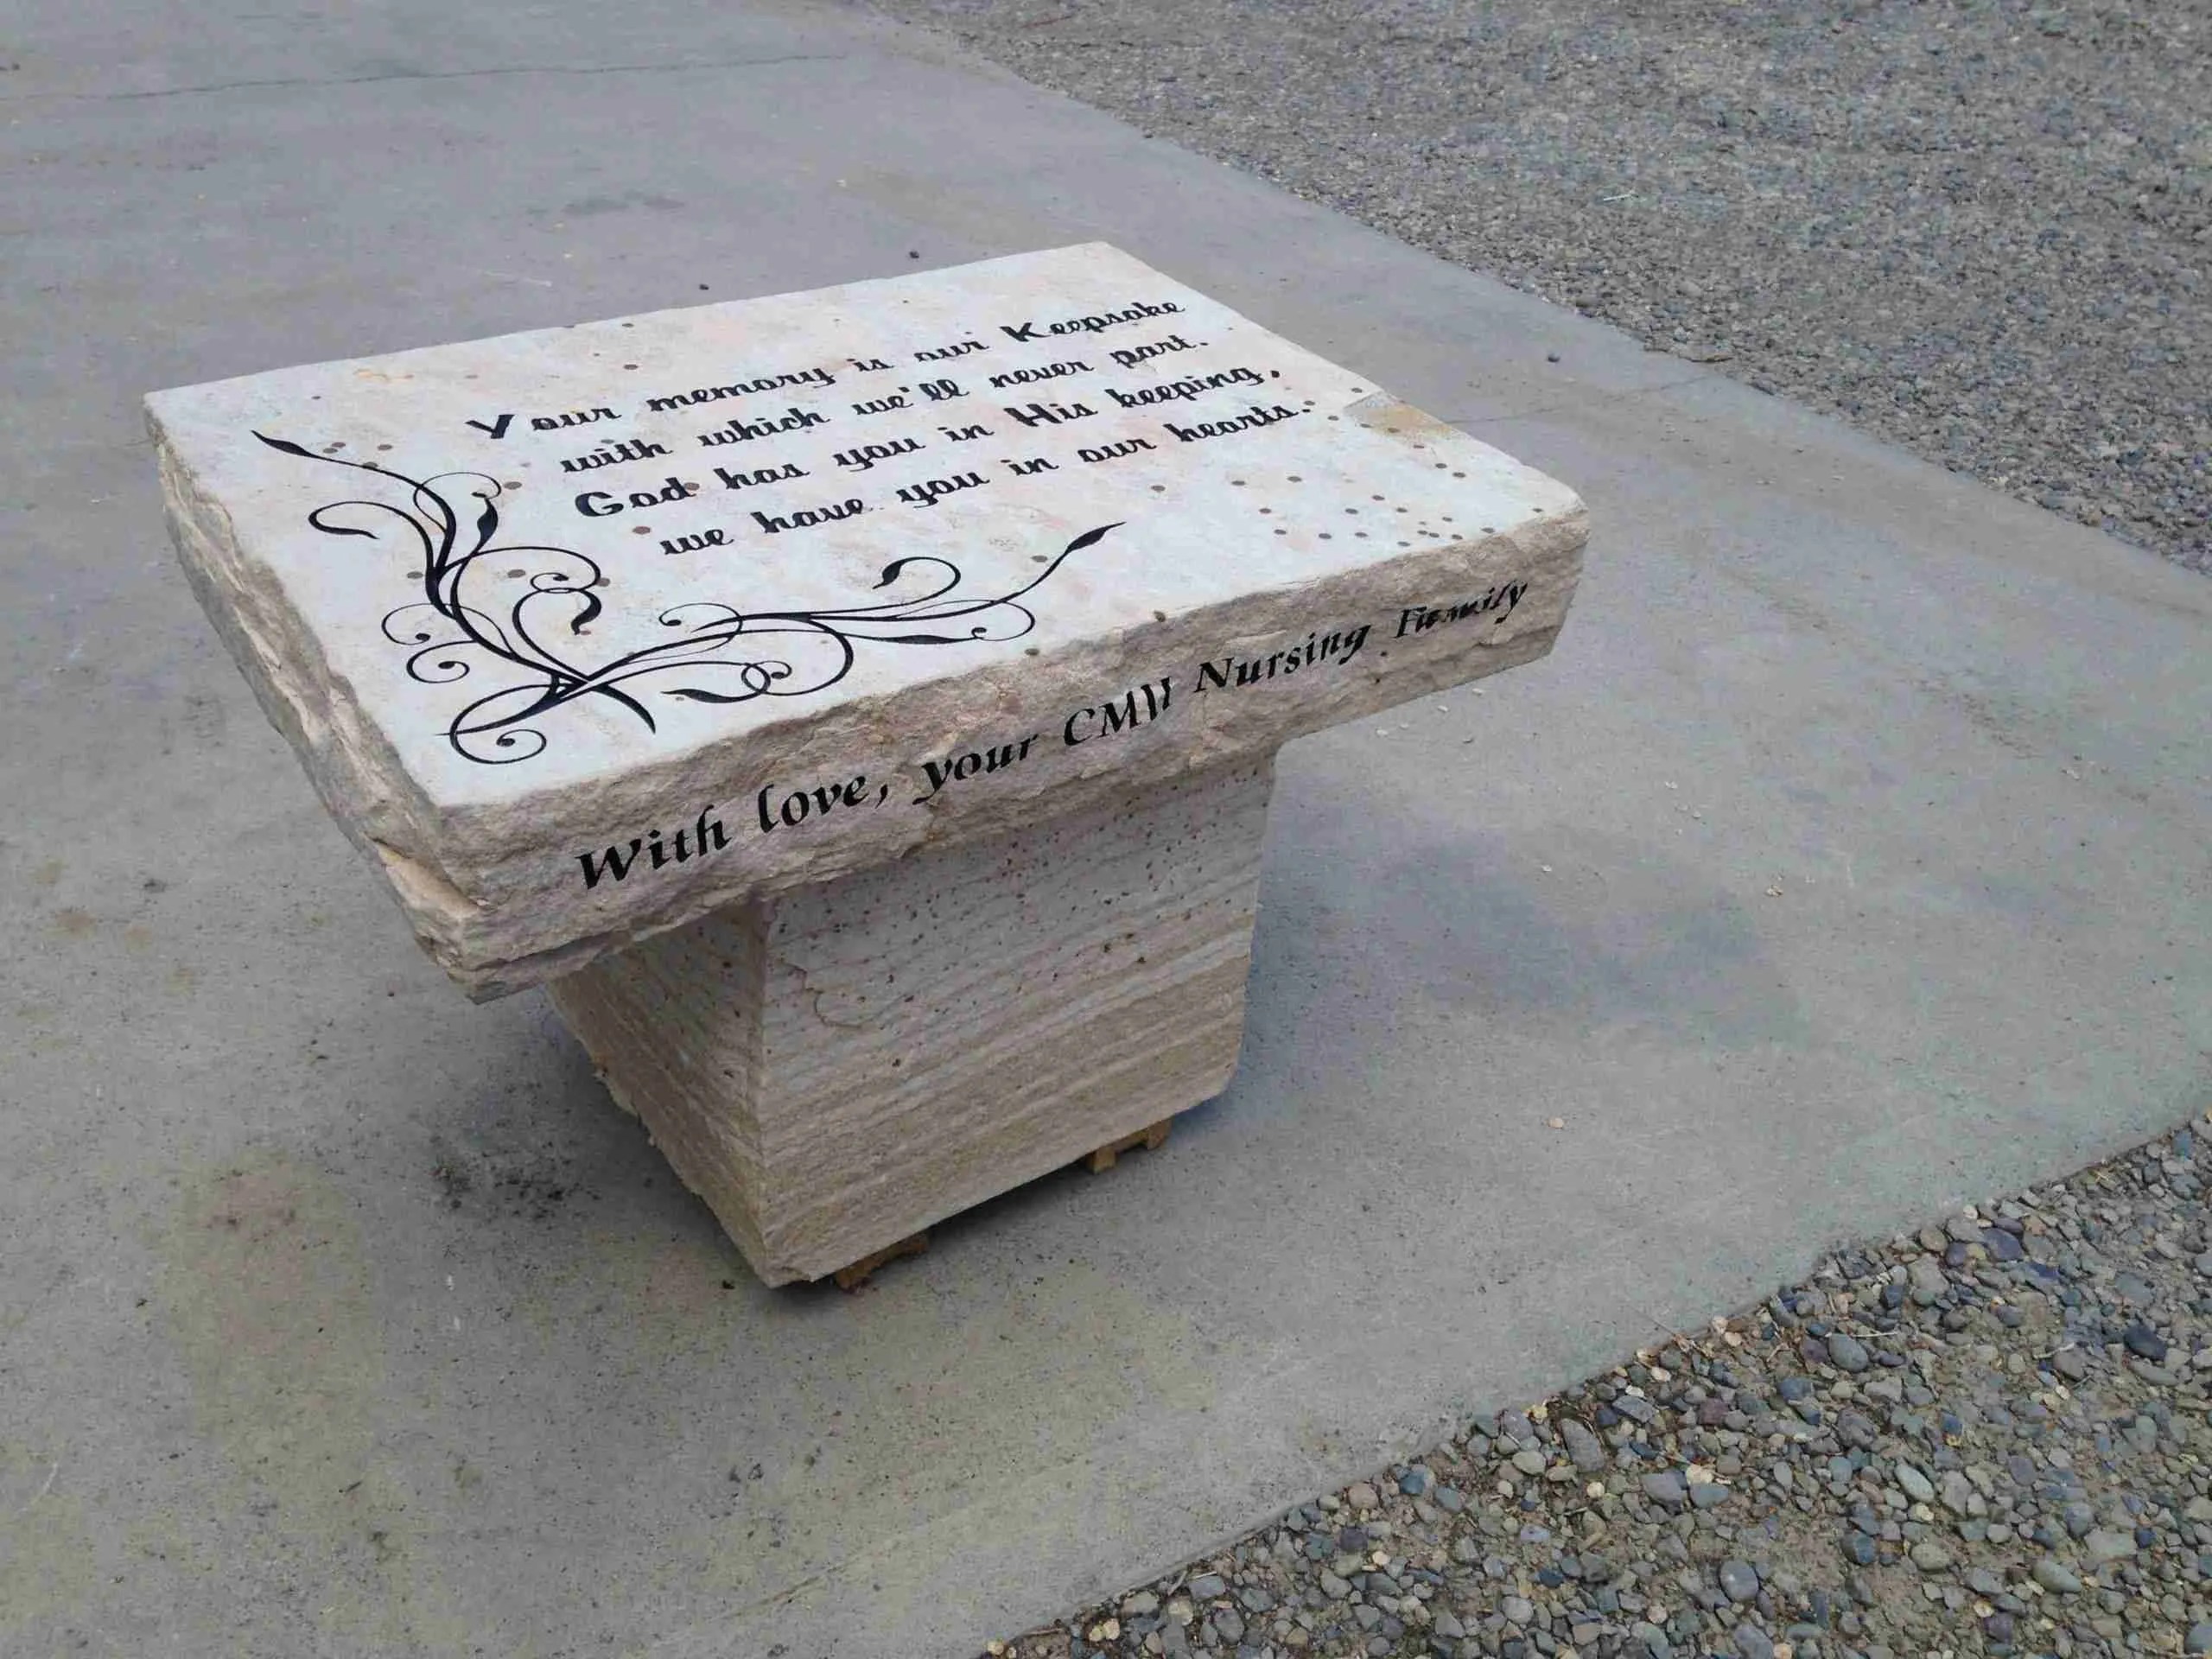 Your memory is our Keepsake
with which we'll never part.
God has you in His keeping,
we have you in our hearts.
With love, your CMW Nursing Family